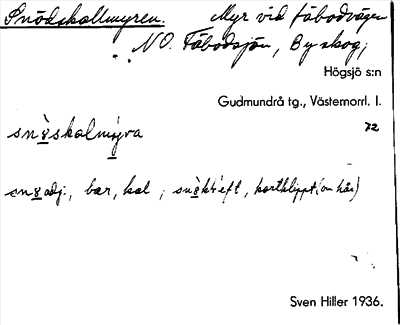 Snödskallmyren. Myr vid fäbodvägen
NO. Fäbodsjön, By skog,
Högsjö s:n
Gudmundrå tg., Västernorrl. l.
72
adj., bar, kal ; kortklippt (om hår)
Sven Hiller 1936.